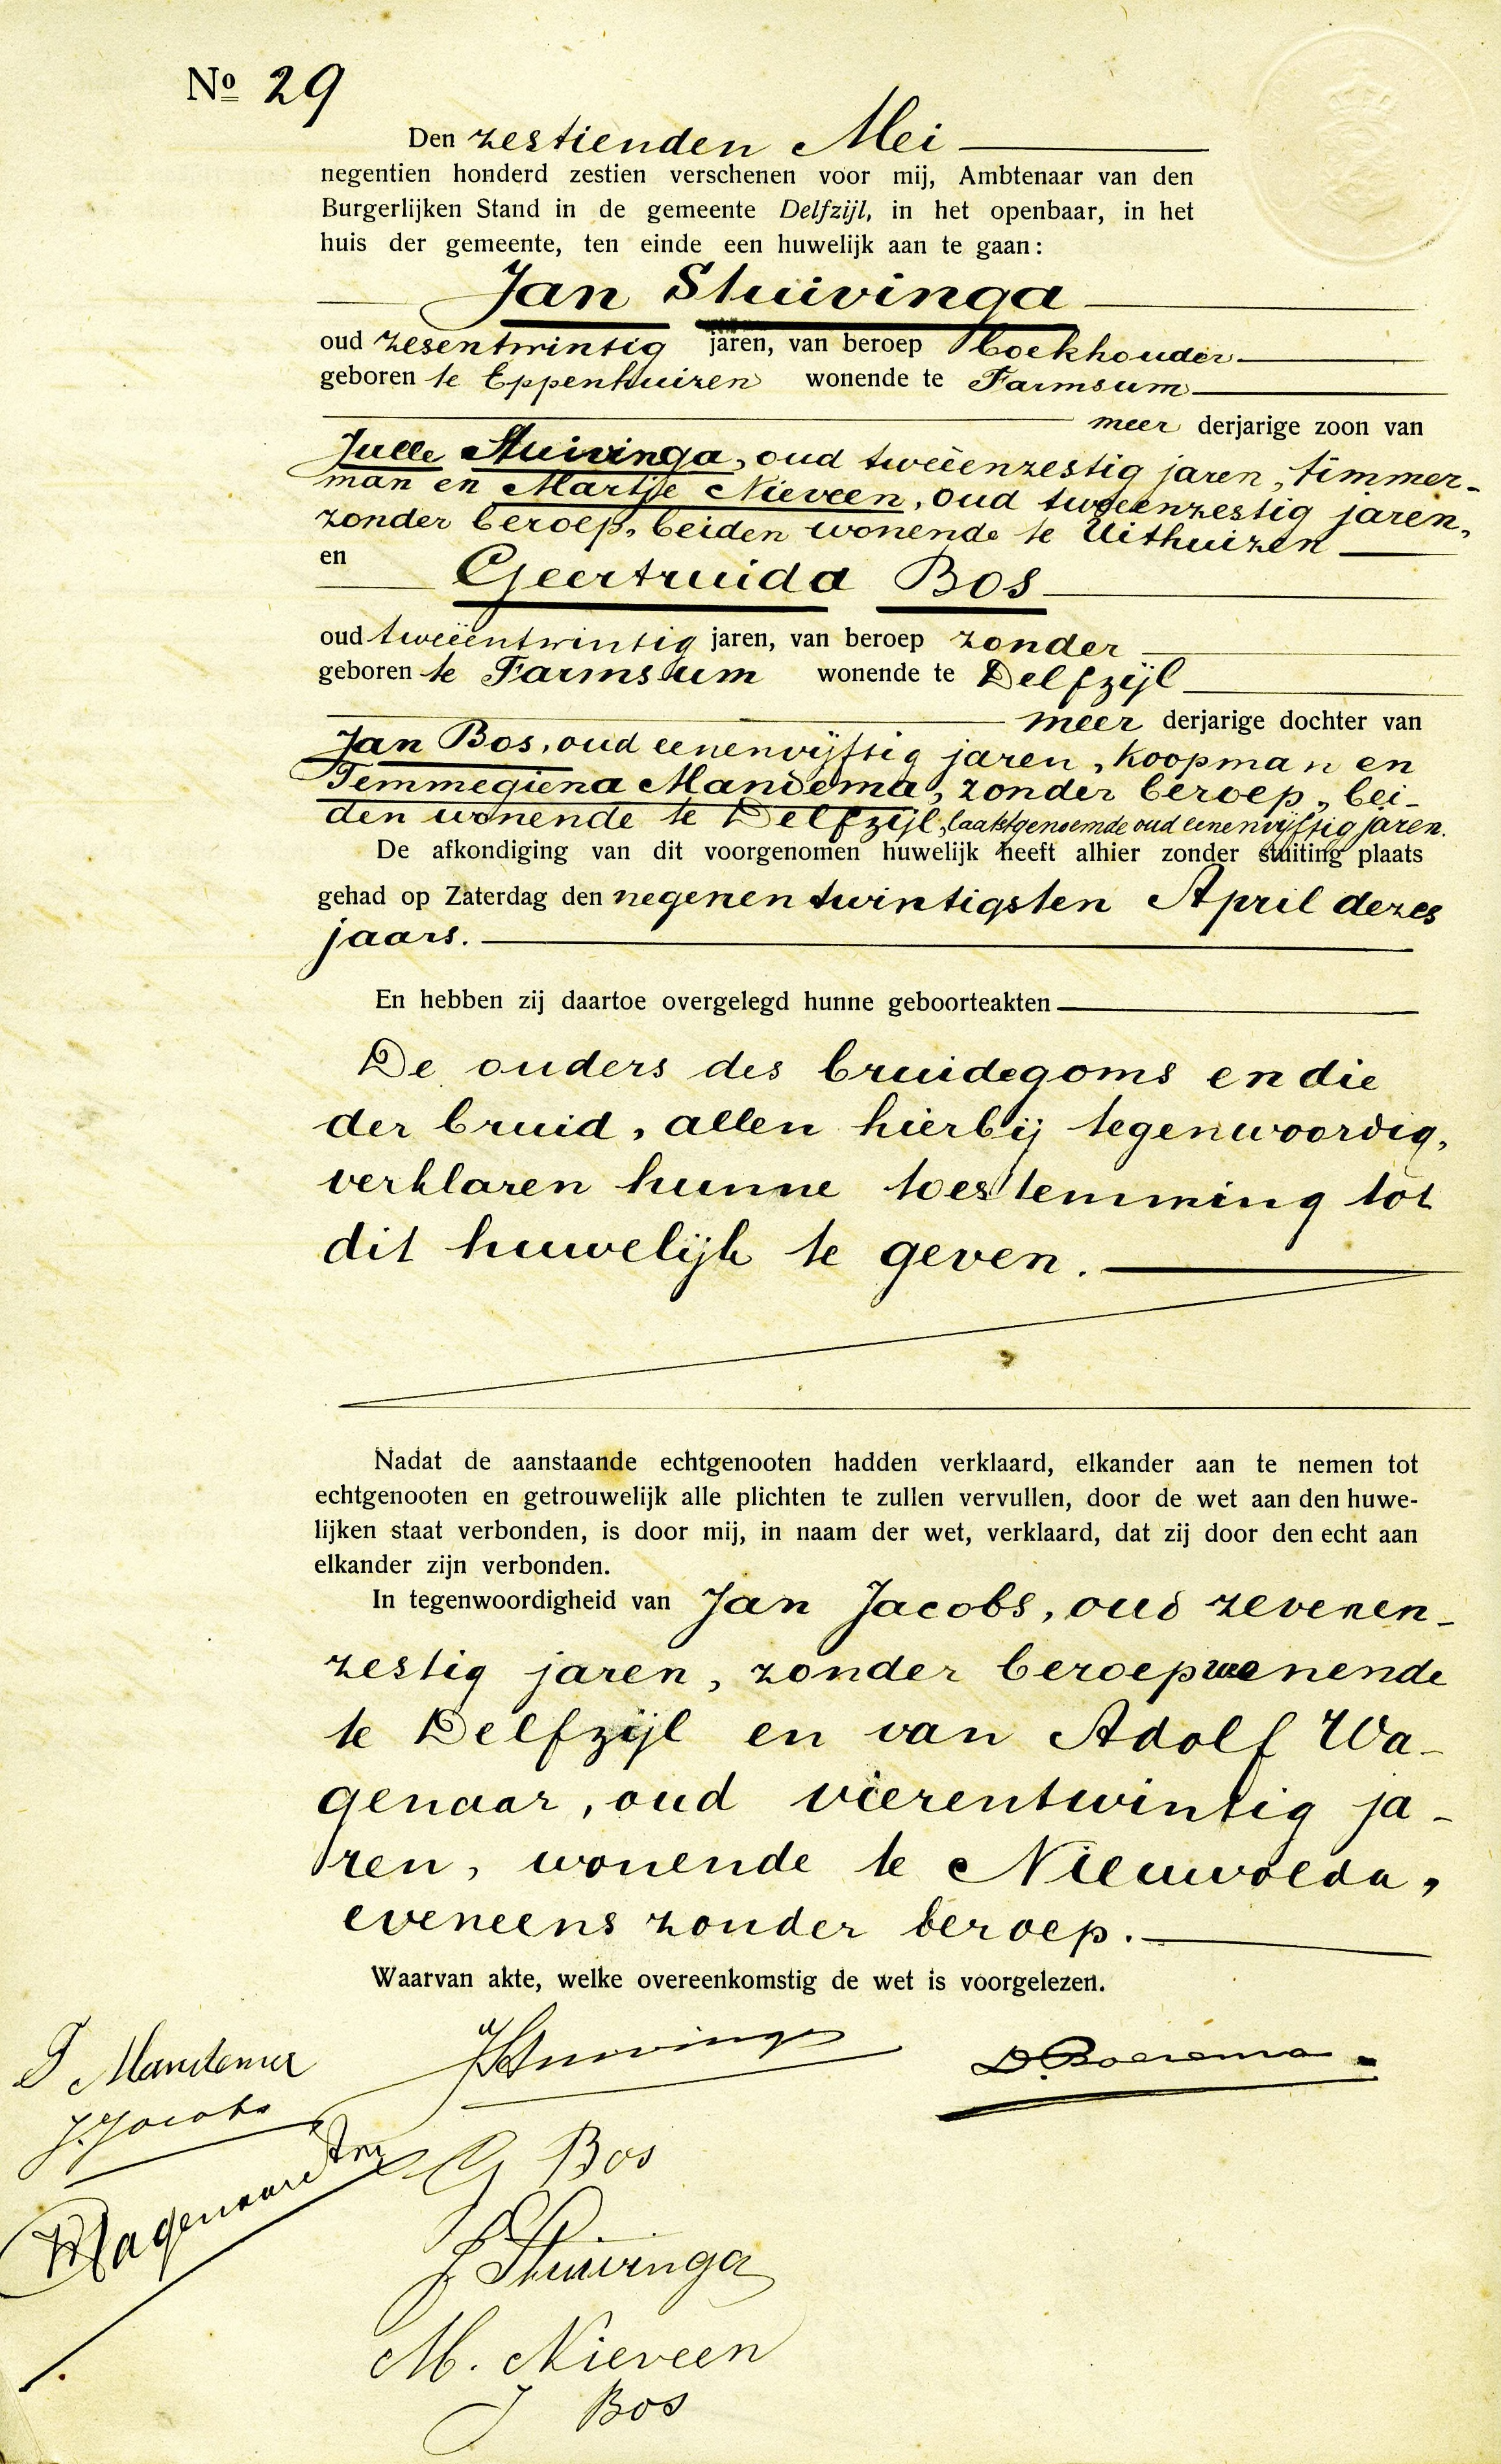 No 29
Den zestienden Mei
negentien honderd zestien verschenen voor mij, Ambtenaar van den
Burgerlijken Stand in de gemeente Delfzijl, in het openbaar, in het
huis der gemeente, ten einde een huwelijk aan te gaan:
Jan Stuivinga
oud zesentwintig jaren, van beroep Boekhouder
geboren te Eppenhuizen wonende te Farmsum
meer derjarige zoon van
Julle Stuivinga, oud tweeënzestig jaren, timmer-
man en Martje Nieveen, oud tweeenzestig jaren,
zonder beroep, beiden wonende te Uithuizen
en Geertruida Bos
oud tweeëntwintig jaren, van beroep zonder
geboren te Farmsum wonende te Delfzijl
meer derjarige dochter van
Jan Bos, oud eenenvijftig jaren, koopman en
Temmegiena Mandema, zonder beroep, bei-
den wonende te Delfzijl, laatstgenoemde oud eenenvijftig jaren.
De afkondiging van dit voorgenomen huwelijk heeft alhier zonder stuiting plaats
gehad op Zaterdag den negenentwintigsten April dezes
jaars.
En hebben zij daartoe overgelegd hunne geboorteakten
De ouders des bruidegoms en die
der bruid, allen hierbij tegenwoordig,
verklaren hunne toestemming tot
dit huwelijk te geven.
Nadat de aanstaande echtgenooten hadden verklaard, elkander aan te nemen tot
echtgenooten en getrouwelijk alle plichten te zullen vervullen, door de wet aan den huwe-
lijken staat verbonden, is door mij, in naam der wet, verklaard, dat zij door den echt aan
elkander zijn verbonden.
In tegenwoordigheid van Jan Jacobs, oud zevenen-
zestig jaren, zonder beroep wonende
te Delfzijl en van Adolf Wa-
genaar, oud vierentwintig ja-
ren, wonende te Nieuwolda,
eveneens zonder beroep.
Waarvan akte, welke overeenkomstig de wet is voorgelezen.
T Mandema
JStuivinga
D. Boerema.
J. Jacobs
G Bos
AWagenaar
J Stuivinga
M. Nieveen
J Bos